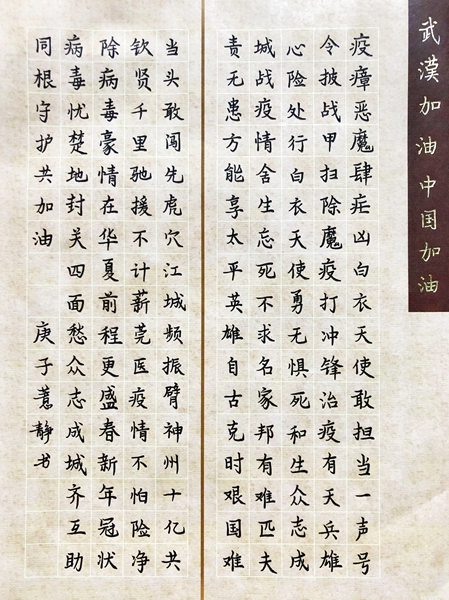 武漢加油中国加油
疫瘴恶魔肆症凶白衣天使敢担当一声号
令披战甲扫除魔疫打冲锋治疫有天兵雄
心险处行白衣天使勇无惧死和生众志成
城战疫情舍生忘死不求名家邦有难匹夫
责无患方能享太平英雄自古克时艰国难
当头敢闯先虎穴江城频振臂神州十亿共
钦贤千里驰援不计薪莞医疫情不怕险净
除病毒豪情在华夏前程更盛春新年冠状
病毒忧楚地封关四面愁众志成城齐互助
同根守护共加油 庚子薏静书